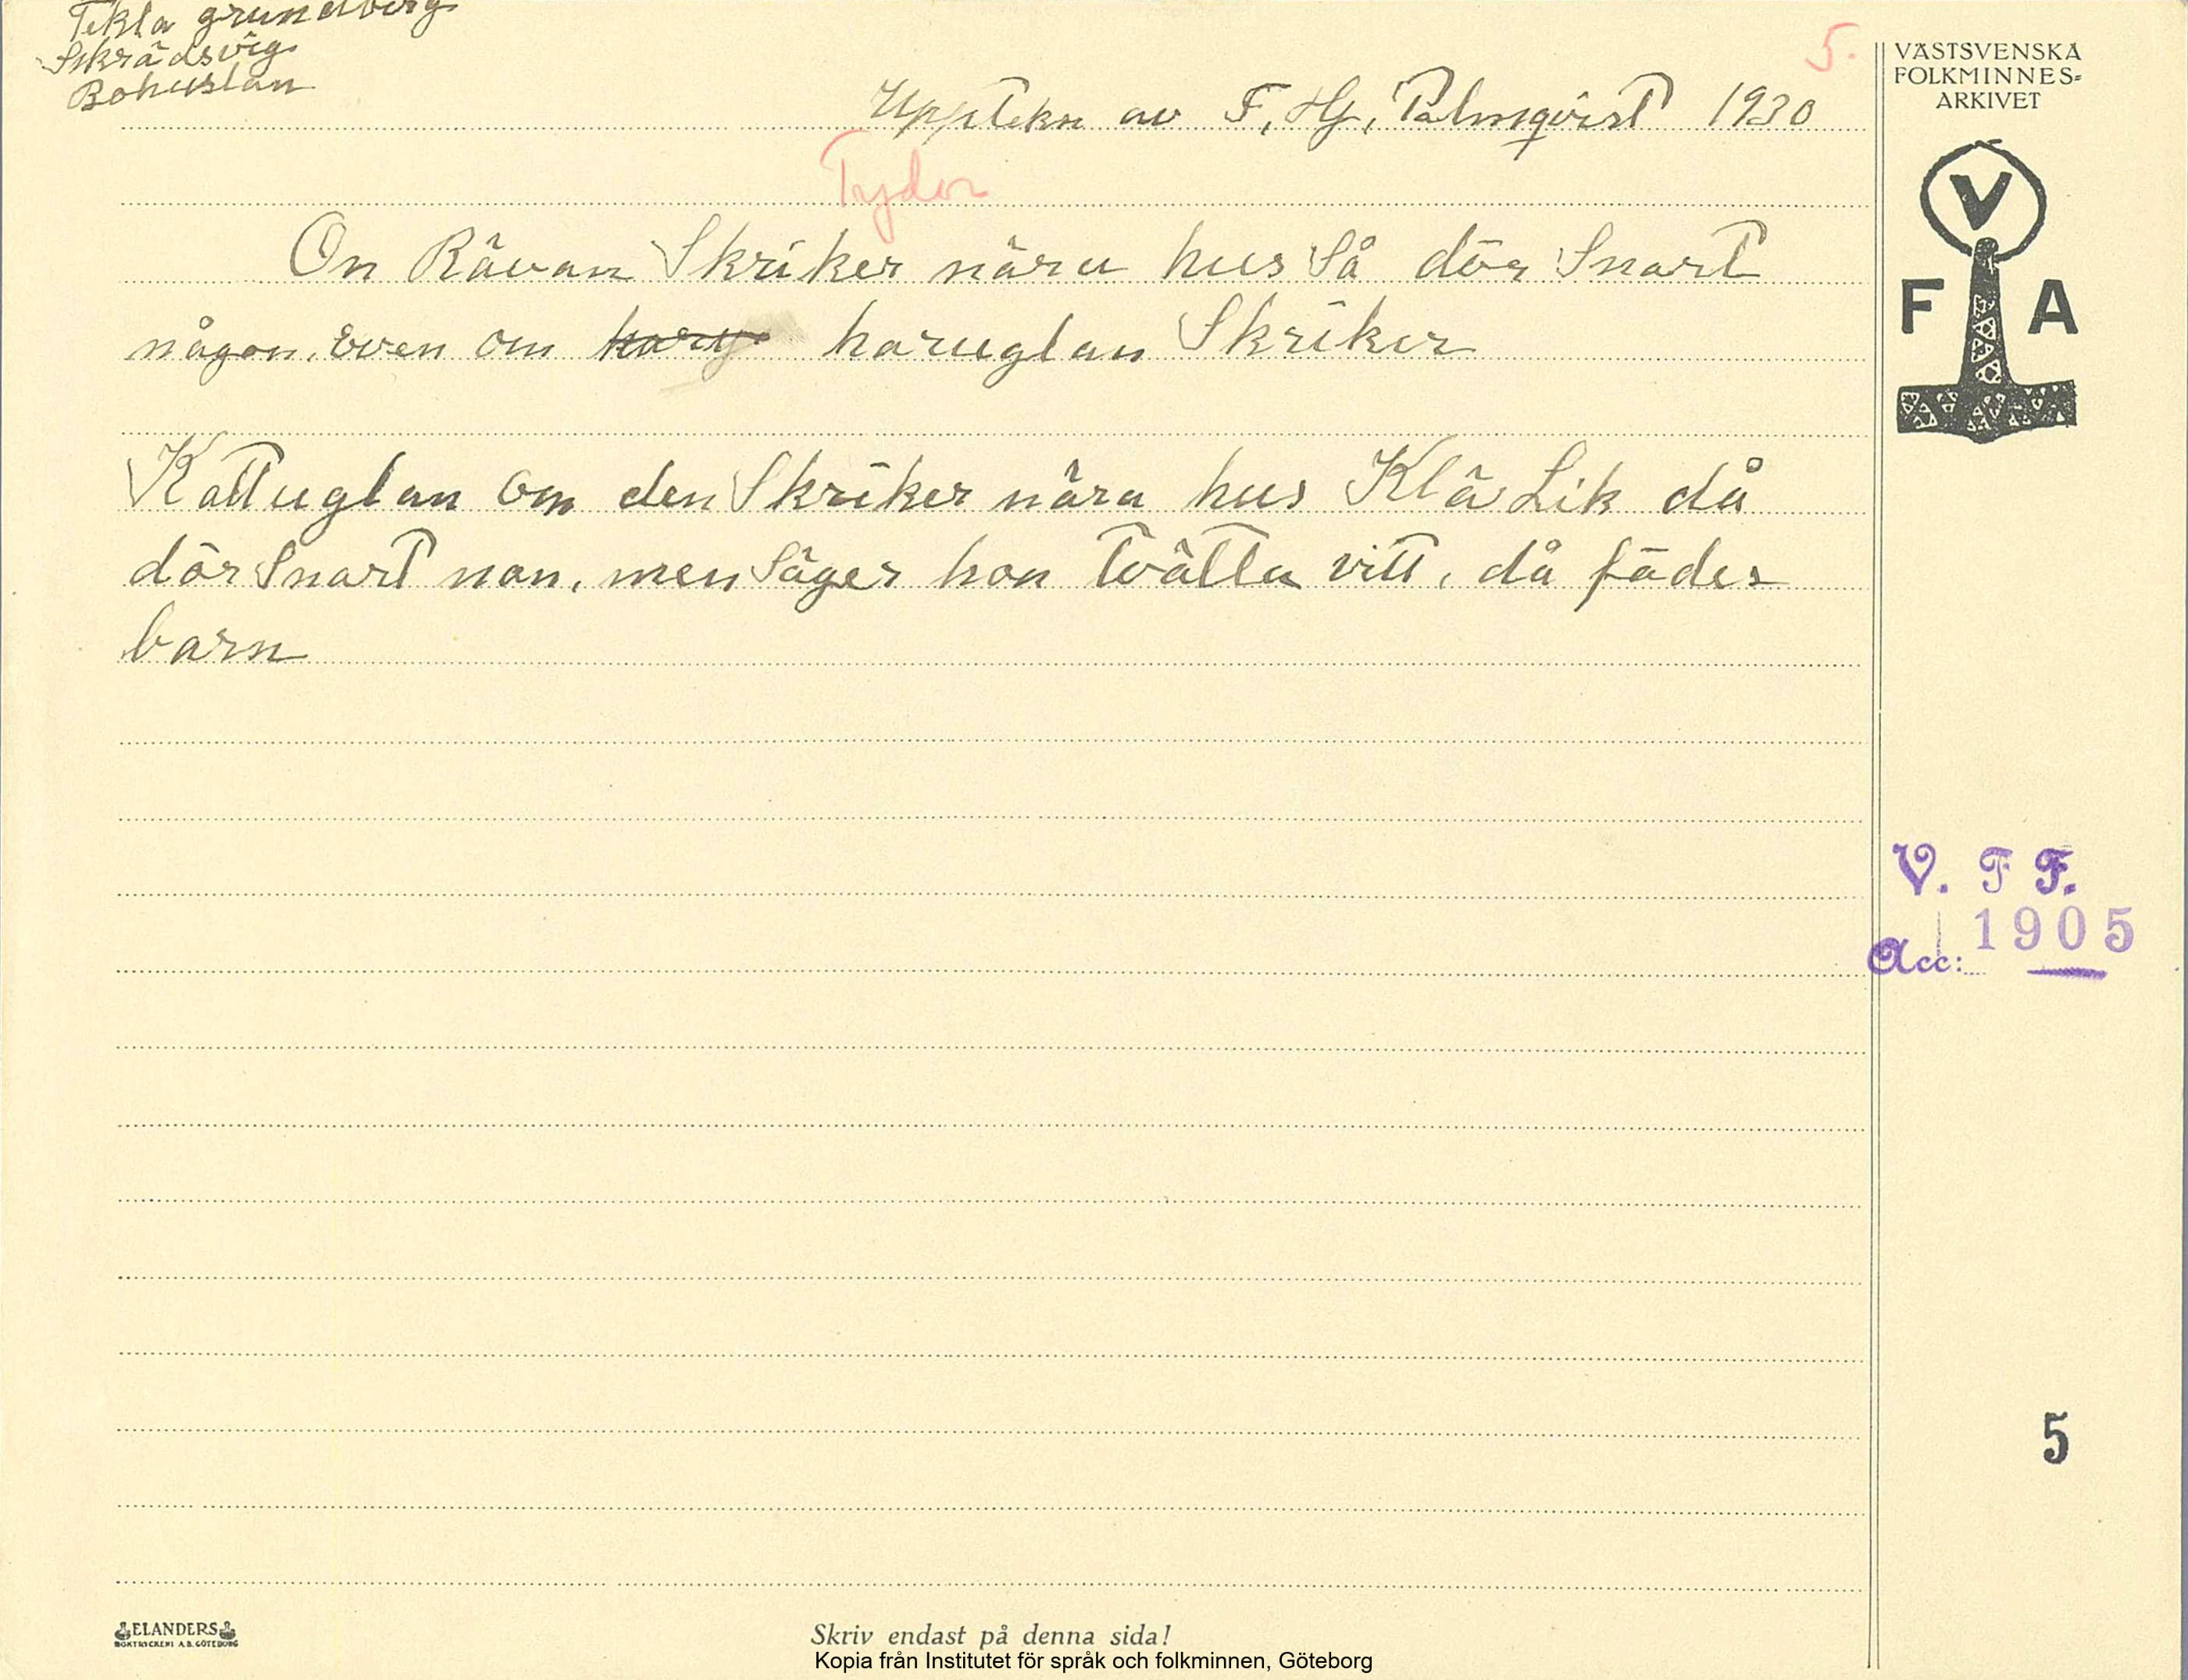 Tekla grundberg
Skrädsvig
Bohuslän
5.
Upptekn av F, Hj, Palmqvist 1930
Tydor
On Rävan Skriker nära hus Så dör Snart
någon, även om haru haruglan Skriker
Kattuglan om den Skriker nära hus Klä Lik då
dör Snart non, men Säger hon Tvätta vitt, då födes
barn
VÄSTSVENSKA
FOLKMINNES=
ARKIVET
V
F A
V. F F.
1905
Acc:
5
ELANDERS
BOKTRYCKERI A.B. GÖTEBORG
Skriv endast på denna sida!
Kopia från Institutet för språk och folkminnen, Göteborg